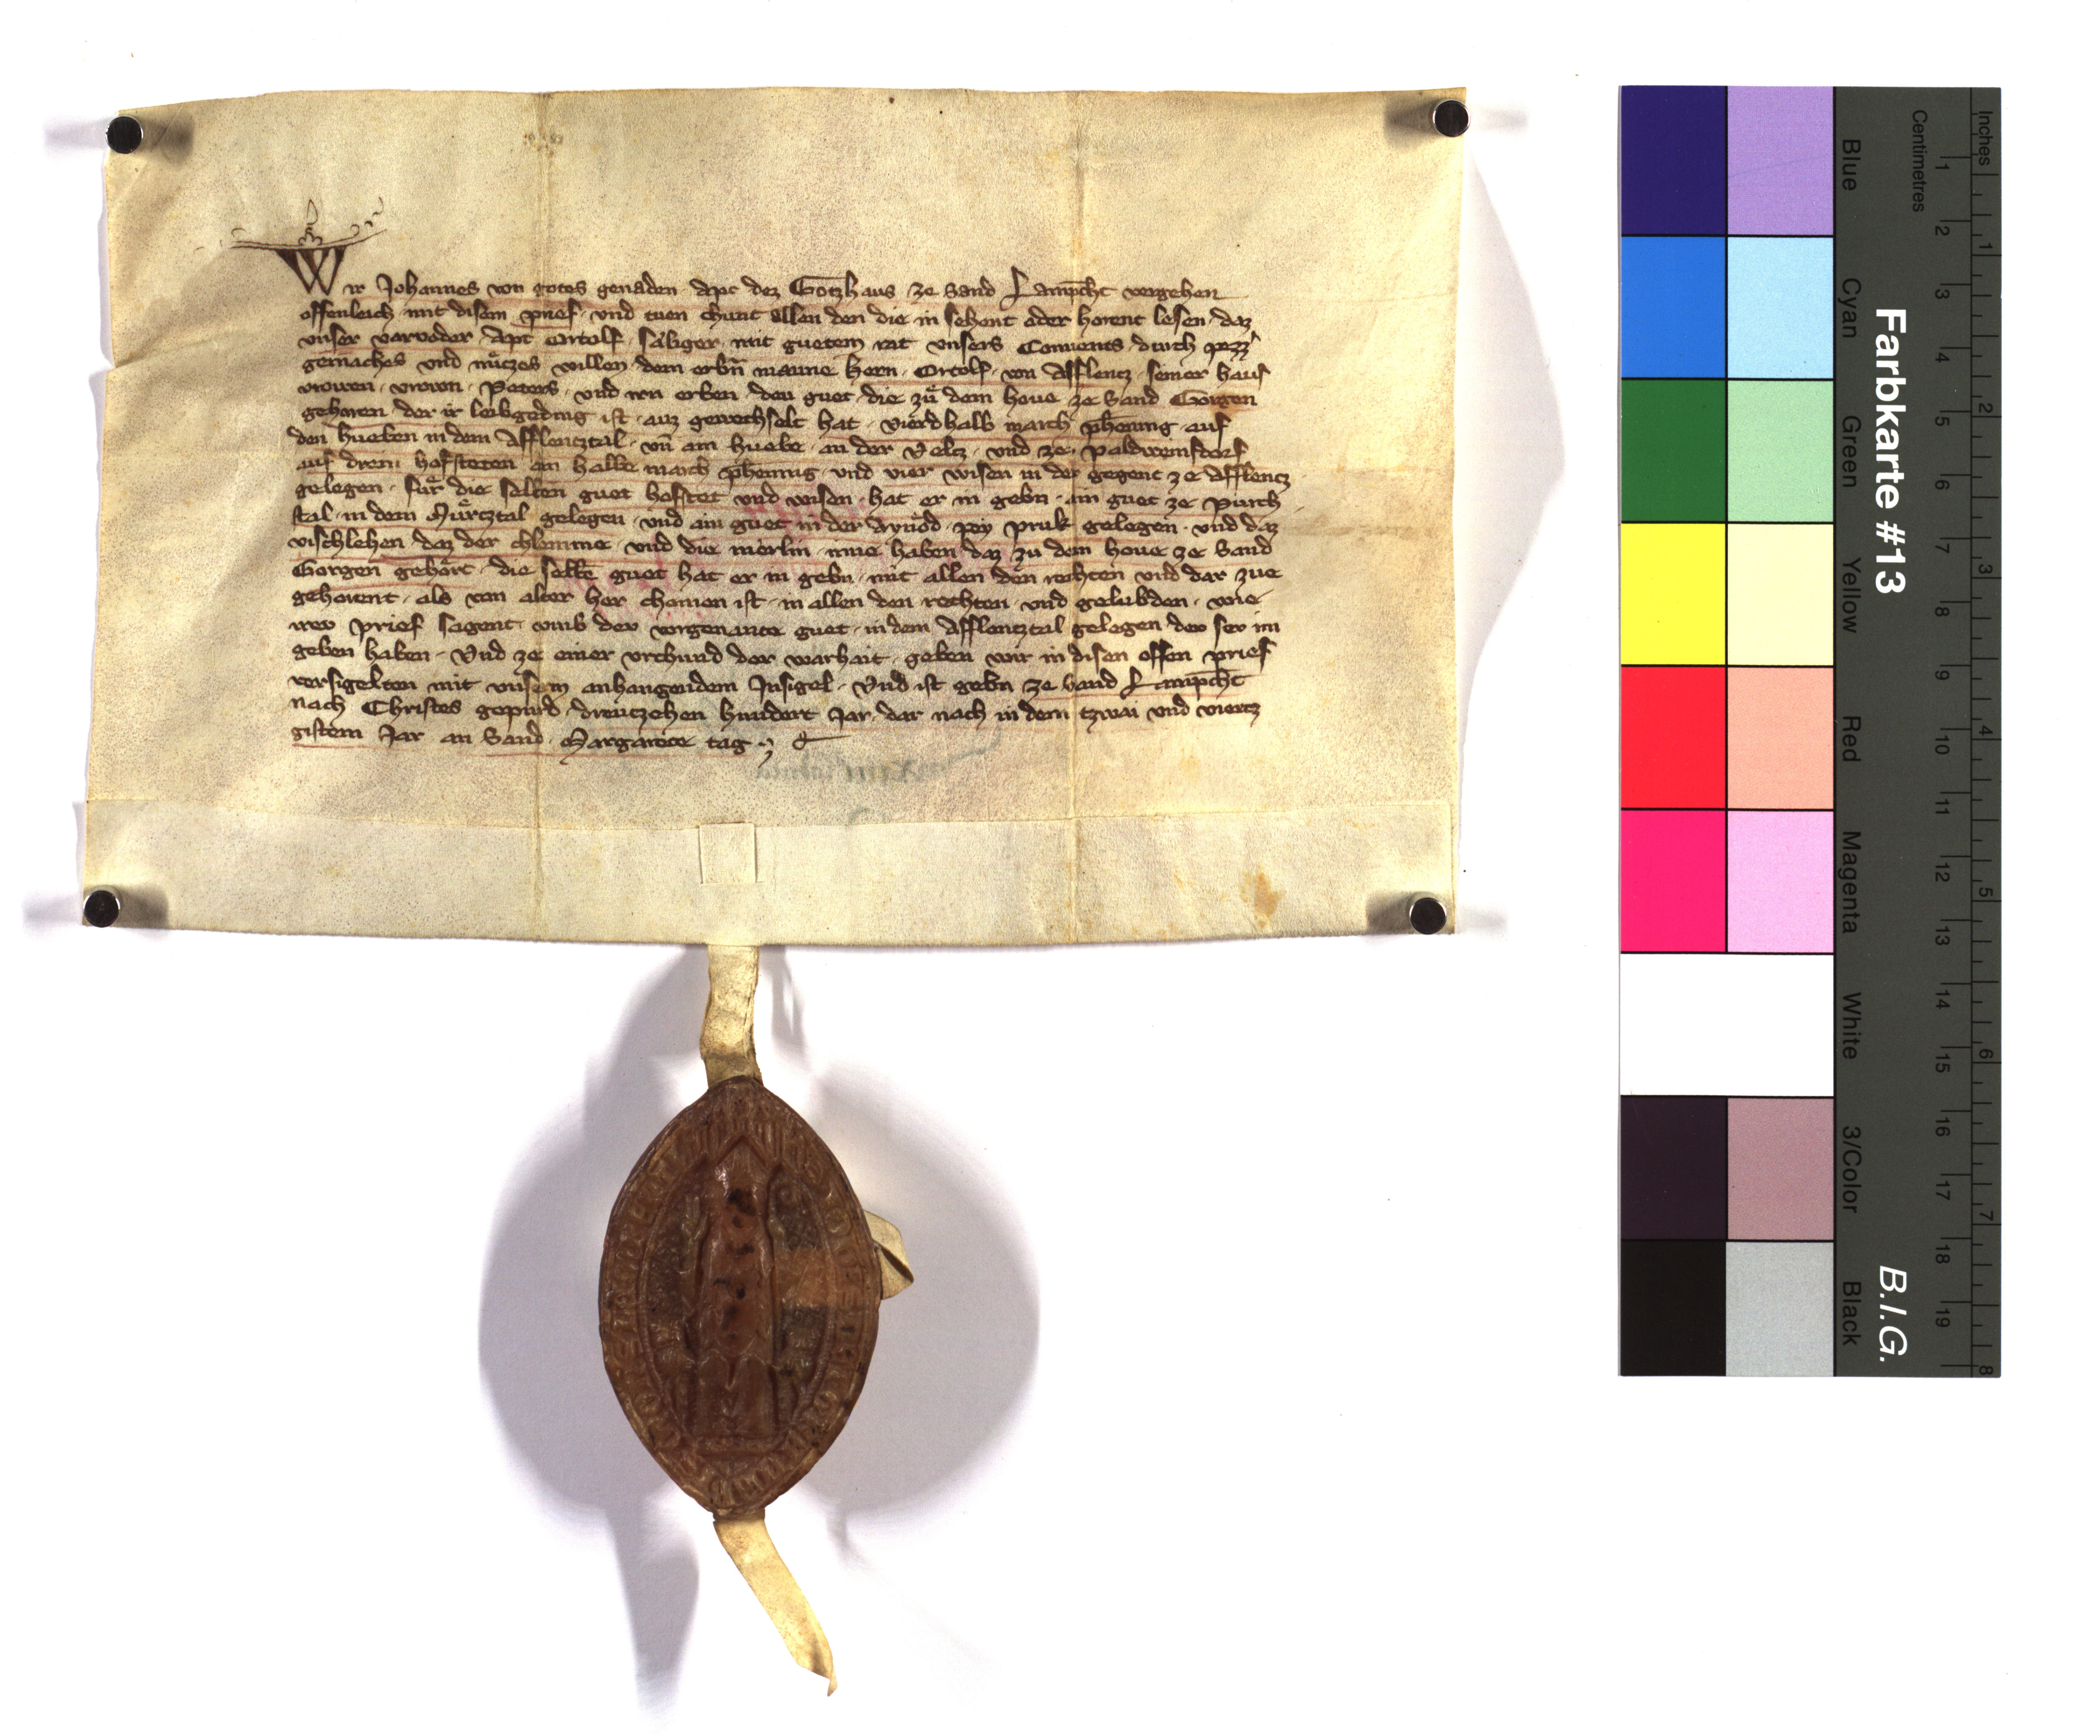 Wir Johannes von gotes genaden Apt dez Gotzhaus ze sand Lampcht vergehen
offenleich mit disem prief und tuen chunt allen den die in sehent oder horent lesen daz
unser vorvoder Apt Ortolf saliger mit guetem rat unsers Convents durch pezz
gemaches und nutzes willen dem erbn manne hern Ortolf von Afflencz seiner haus
vrowen vrown Peters und irn erben deu guet die zu dem hove ze Sand Gorgen
gehorent der ir leibgeding ist auz gewechselt hat vierdhalb march phening auf
den hueben in dem Afflencztal und am huebe an der Veltz und ze Paldweinsdorf
auf drein hofsteten ain halbe march phennig und vier wisen in der gegent ze Afflencz
gelegen fur die selben guet hofstet und wisen hat er in gebn ain guet ze Purch
stal in dem Murtztal gelegen und ain guet in der Aynod pey pruk gelegen und daz
vischlehen daz der chlemme und die merlin inne haben daz zu dem hove ze Sand
Gorgen gehort die selben guet hat er in gebn mit allen den rechten und dar zue
gehorent als von alter her chomen ist in allen den rechten und gelubden wie
irev prief sagent umb dev vorgenante guet in dem Afflentztal gelegen dev sev im
geben haben Und ze einer urchund der warhait geben wir in disen offen prief
versigelten mit unserm anhangendem Insigel Und ist gebn ze Sand Lampcht
nach Christes gepurd dreutzehen hundert Jar dar nach in dem tzwai und viertz
gistem Jar an Sand Margareten tag
Farbkarte #13
B.I.G.
Inches
Centimetres
1 2 3 4 5 6 7 8 9 10 11 12 13 14 15 16 17 18 19
1 2 3 4 5 6 7 8
Blue
Cyan
Green
Yellow
Red
Magenta
White
3/Color
Black